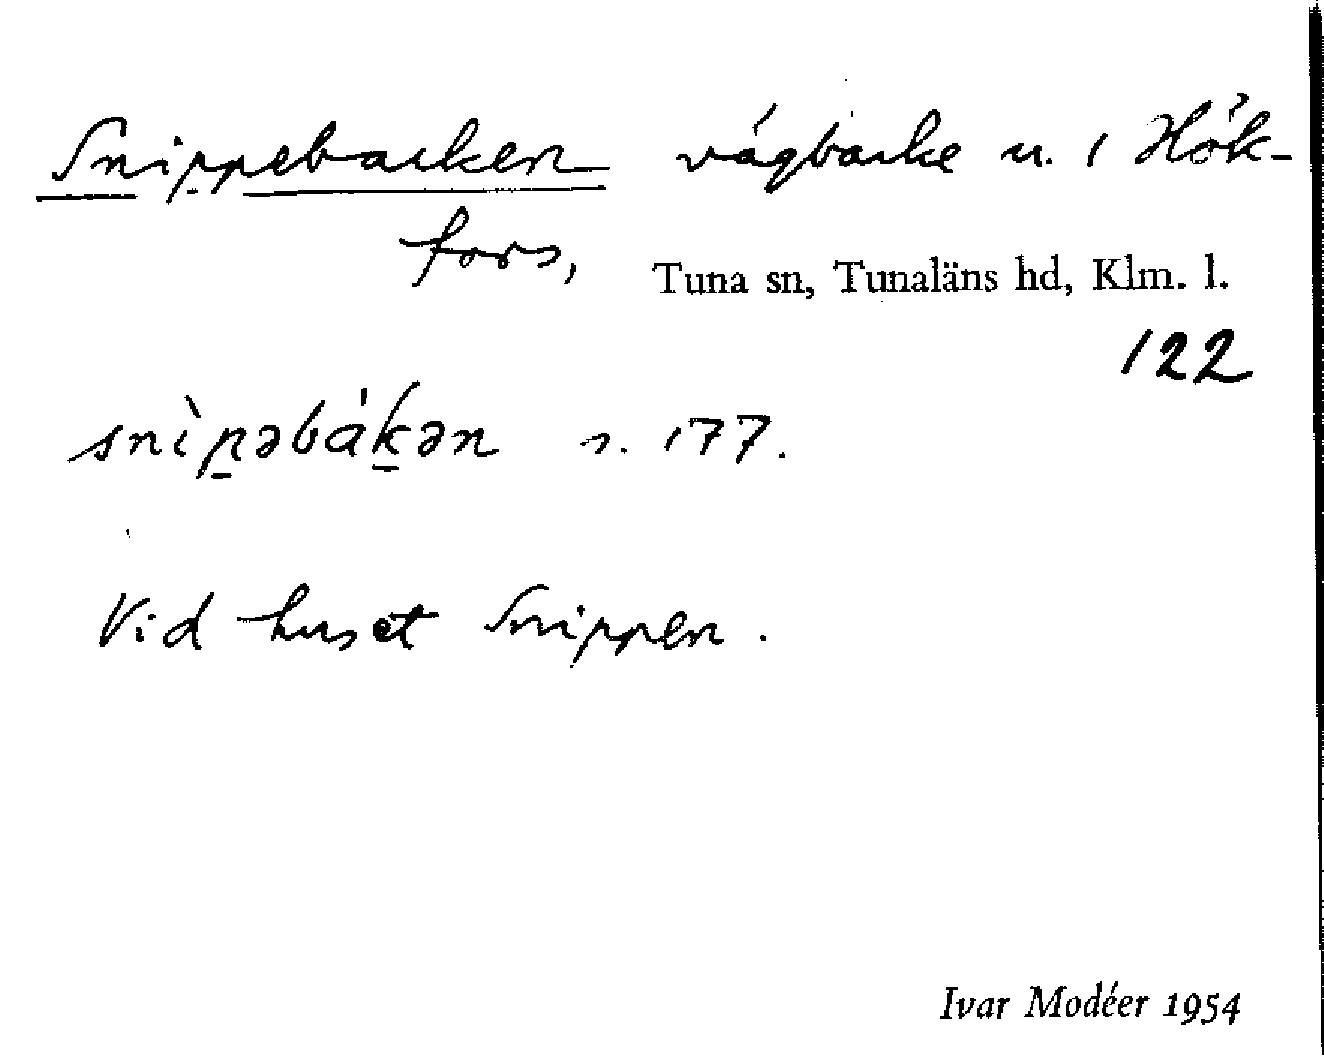 Snippebacken vägbacke u. 1 Hök-
fors,
Tuna sn, Tunaläns hd, Klm. l.
122
snìp̲əbák̲ən s. 177.
Vid huset Snippen.
Ivar Modéer 1954